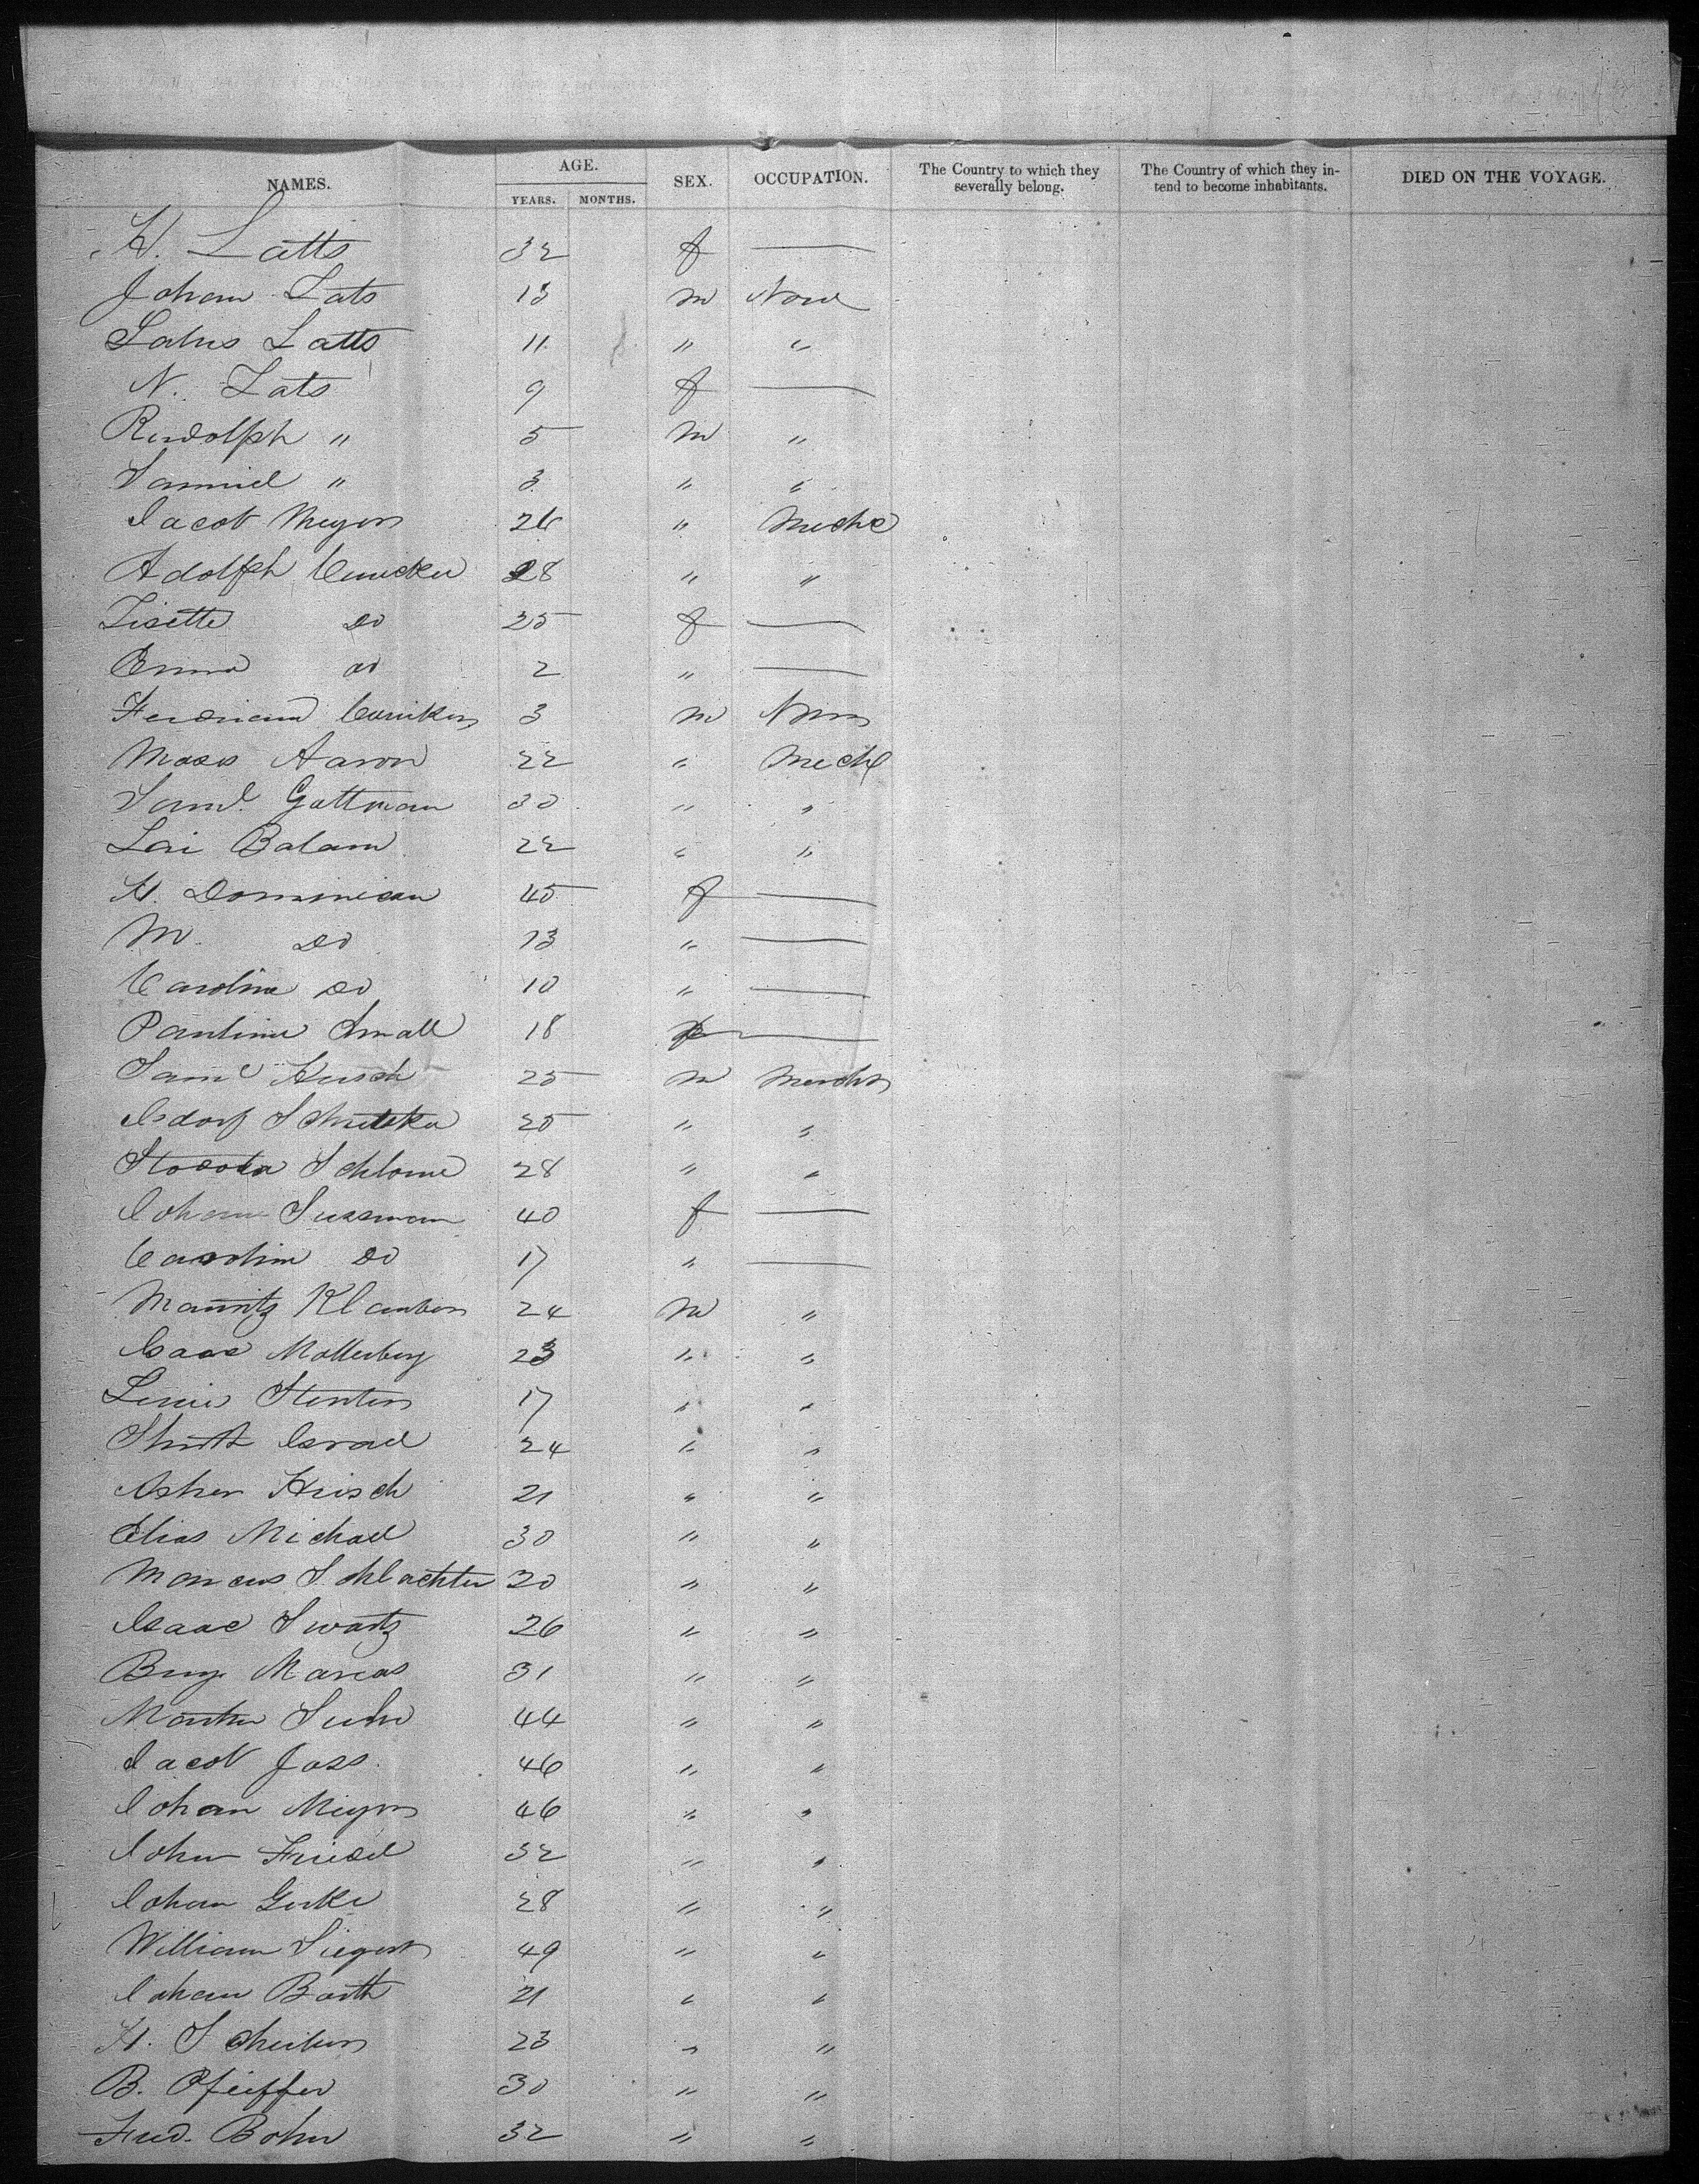 NAMES. AGE. YEARS. MONTHS. SEX. OCCUPATION. The Country to which they severally belong. The Country of which they intend to become inhabitants. DIED ON THE VOYAGE.
H. Latts 32 f —
Johan Lats 13 m None
Latts 11 " "
N. Lats 9 f —
Rudolph " 5 m "
Samuel " 3 " "
Jacob Meyers 26 " Mechc
Adolph 28 " "
Lisette Do 25 f —
Emma do 2 " —
3 m None
Moses Aaron 22 " Mech
Saml. Guttman 30 " "
Balam 22 " "
H. Dominican 45 f —
M. Do 13 " —
Caroline Do 10 " —
Pauline Small 18 f —
Saml Hirsch 25 m Merchts
25 " "
Schlome 28 " "
Johann Sussman 40 f —
Caroline Do 17 " —
Mauritz Klauben 24 m "
Isaac Mollerberg 23 " "
Louis 17 " "
Israel 24 " "
Asher Hirsch 21 " "
Elias Michael 30 " "
Marcus Schlachter 30 " "
Isaac Swartz 26 " "
Marcas 31 " "
44 " "
Jacob Joss 46 " "
Johan Meyers 46 " "
John 32 " "
Johan 28 " "
William Siegert 49 " "
Johan Barth 21 " "
H. 23 " "
B. Pfeiffer 30 " "
Fred. Bohn 32 " "